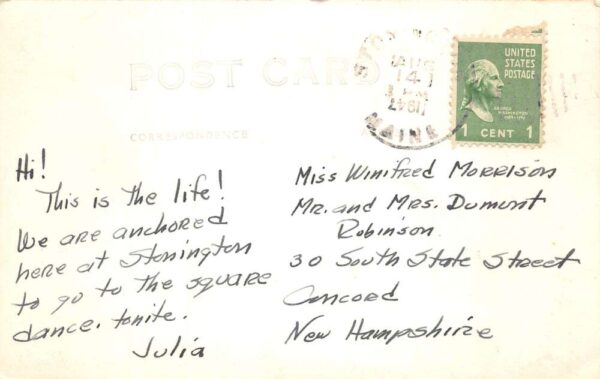 POST CARD
CORRESPONDENCE
Hi!
This is the life!
We are anchored
here at Stonington
to go to the square
dance. tonite.
Julia
AUG
14
1947
MAINE
UNITED
STATES
POSTAGE
GEORGE
WASHINGTON
1 CENT 1
Miss Winifred Morrison
Mr. and Mrs. Dumont
Robinson
30 South State Street
Concord
New Hampshire